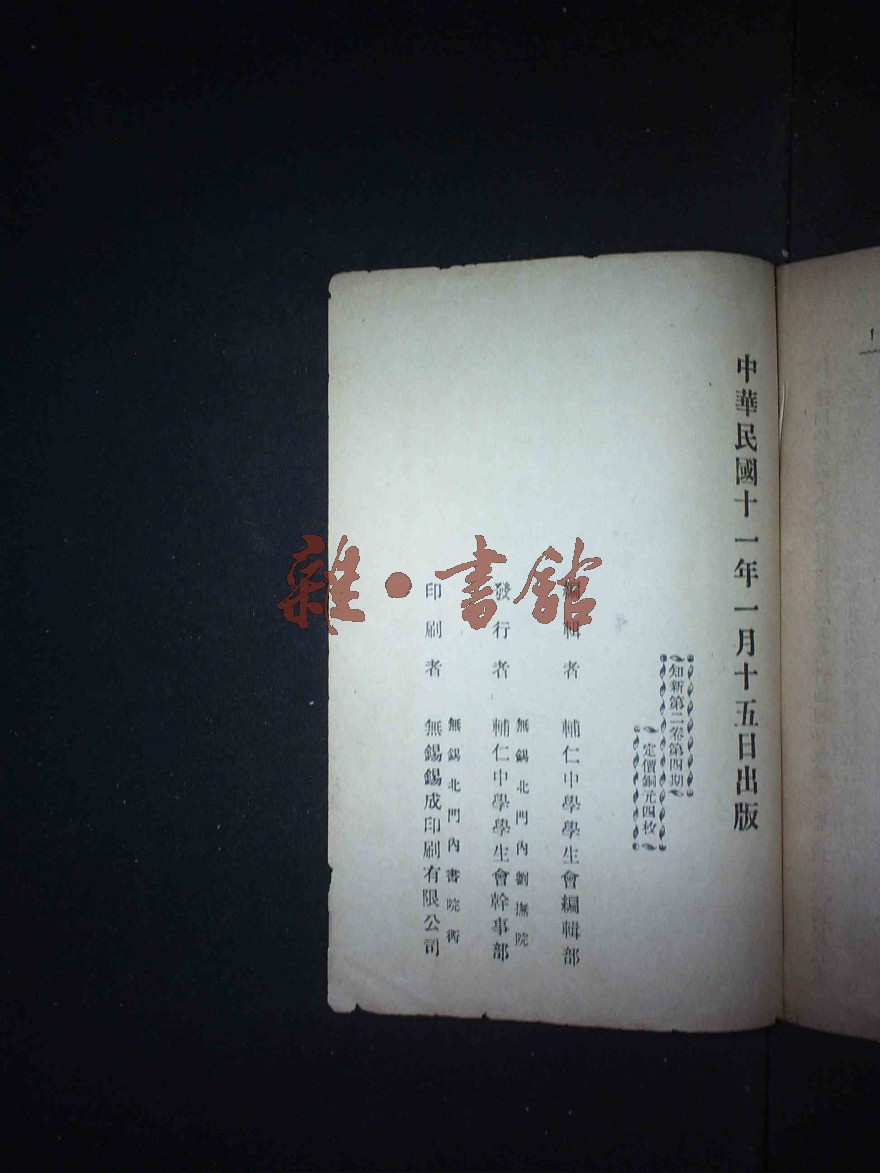 中華民國十一年一月十五日出版
知新第二卷第四期
定價銅元四枚
編輯者 輔仁中學學生會編輯部
無錫北門內劉撫院
發行者 輔仁中學學生會幹事部
無錫北門內書院衖
印刷者 無錫錫成印刷有限公司
雜·書館